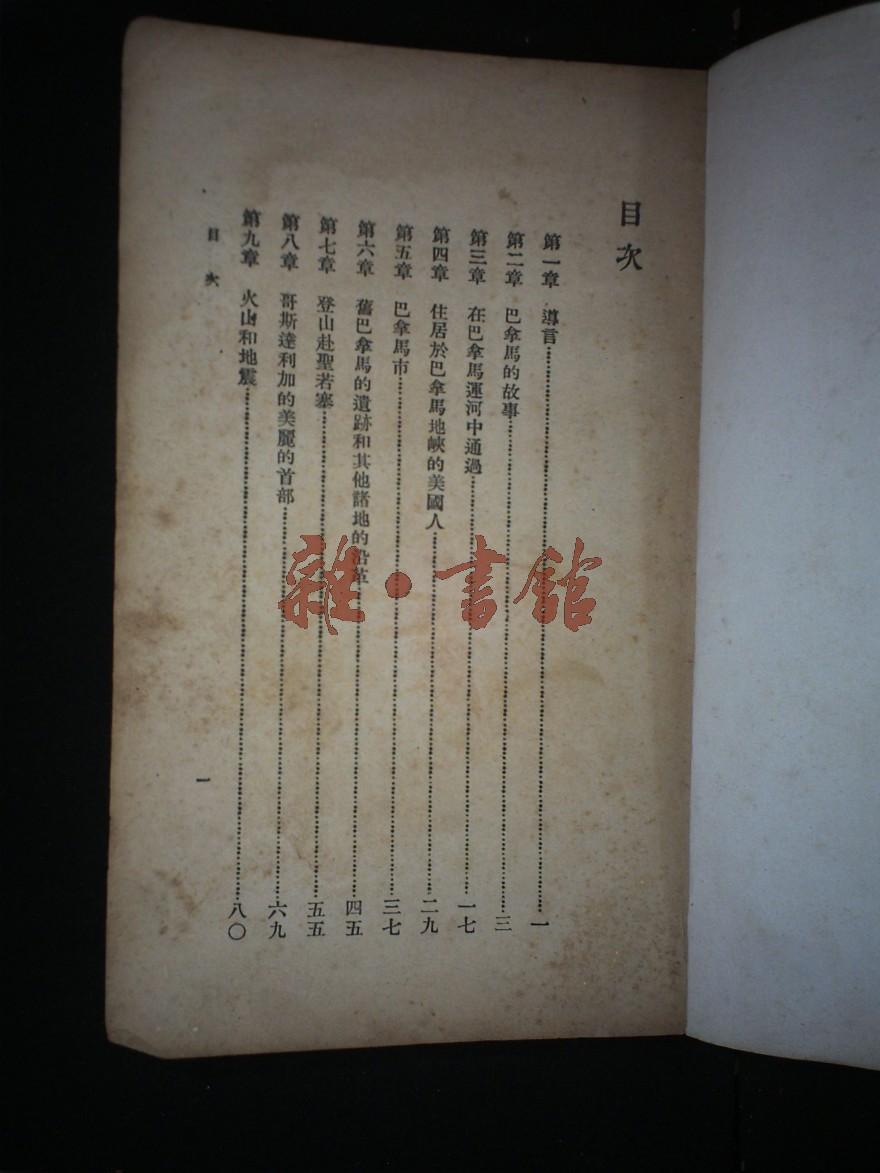 目次
第一章 導言……一
第二章 巴拿馬的故事……三
第三章 在巴拿馬運河中通過……一七
第四章 住居於巴拿馬地峽的美國人……二九
第五章 巴拿馬市……三七
第六章 舊巴拿馬的遺跡和其他諸地的沿革……四五
第七章 登山赴聖若塞……五五
第八章 哥斯達利加的美麗的首部……六九
第九章 火山和地震……八〇
目次 一
雜·書館